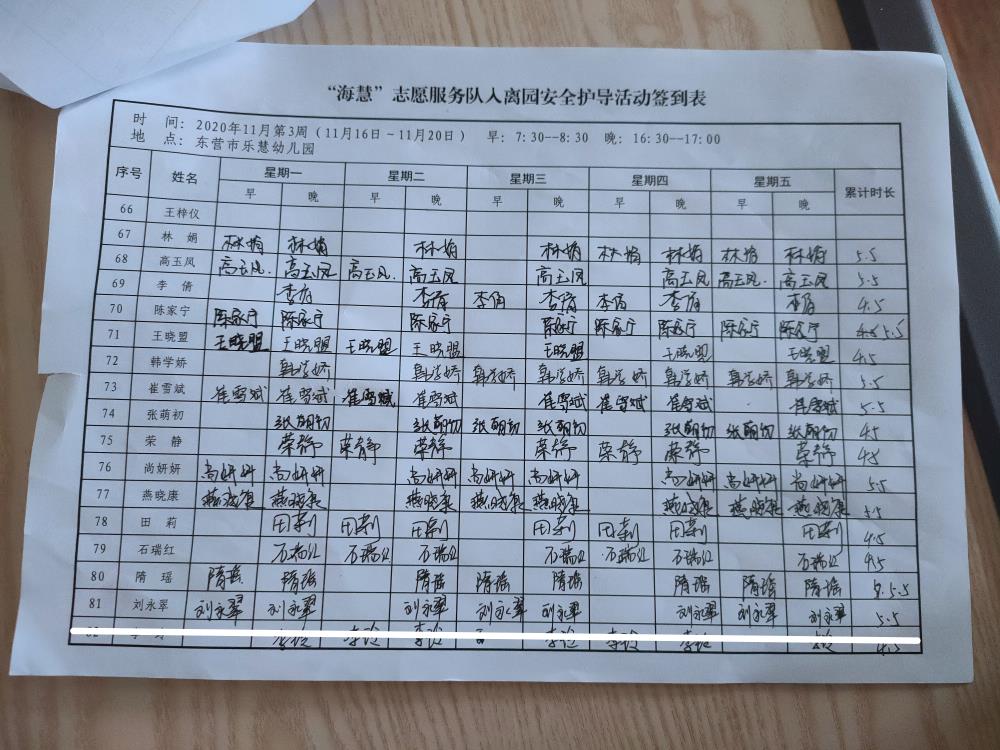 “海慧”志愿服务队入离园安全护导活动签到表
时 间：2020年11月第3周（11月16日~11月20日） 早：7:30--8:30 晚：16:30--17:00
地 点：东营市乐慧幼儿园
序号 姓名 星期一 星期二 星期三 星期四 星期五 累计时长
早 晚 早 晚 早 晚 早 晚 早 晚
66 王梓仪
67 林娟 林娟 林娟 林娟 林娟 林娟 林娟 林娟 林娟 5.5
68 高玉凤 高玉凤. 高玉凤 高玉凤. 高玉凤 高玉凤 高玉凤 高玉凤. 高玉凤 5.5
69 李倩 李倩 李倩 李倩 李倩 李倩 李倩 李倩 4.5
70 陈家宁 陈家宁 陈家宁 陈家宁 陈家宁 陈家宁 陈家宁 陈家宁 陈家宁 5.5
71 王晓盟 王晓盟 王晓盟 王晓盟 王晓盟 王晓盟 王晓盟 王晓盟 4.5
72 韩学娇 韩学娇 韩学娇 韩学娇 韩学娇 韩学娇 韩学娇 韩学娇 韩学娇 5.5
73 崔雪斌 崔雪斌 崔雪斌 崔雪斌 崔雪斌 崔雪斌 崔雪斌 崔雪斌 崔雪斌 5.5
74 张萌初 张萌初 张萌初 张萌初 张萌初 张萌初 张萌初 45
75 荣静 荣静 荣静 荣静 荣静 荣静 荣静 荣静 45
76 尚妍妍 尚妍妍 尚妍妍 尚妍妍 尚妍妍 尚妍妍 尚妍妍 尚妍妍 尚妍妍 5.5
77 燕晓康 燕晓康 燕晓康 燕晓康 燕晓康 燕晓康 燕晓康 燕晓康 燕晓康 5.5
78 田莉 田莉 田莉 田莉 田莉 田莉 田莉 田莉 4.5
79 石瑞红 石瑞红 石瑞红 石瑞红 石瑞红 石瑞红 石瑞红 石瑞红 4.5
80 隋瑶 隋瑶 隋瑶 隋瑶 隋瑶 隋瑶 隋瑶 隋瑶 隋瑶 5.5
81 刘永翠 刘永翠 刘永翠 刘永翠 刘永翠 刘永翠 刘永翠 刘永翠 刘永翠 5.5